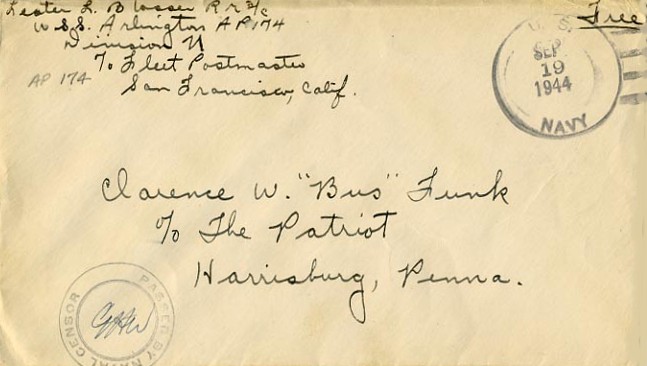 Lester L. Blosser R M 2/c
U.S.S. Arlington AP174
Division N
℅ Fleet Postmaster
San Francisco, Calif.
AP 174
Free
U. S.
SEP
19
1944
NAVY
Clarence W. "Bus" Funk
℅ The Patriot
Harrisburg, Penna.
PASSED BY NAVAL CENSOR